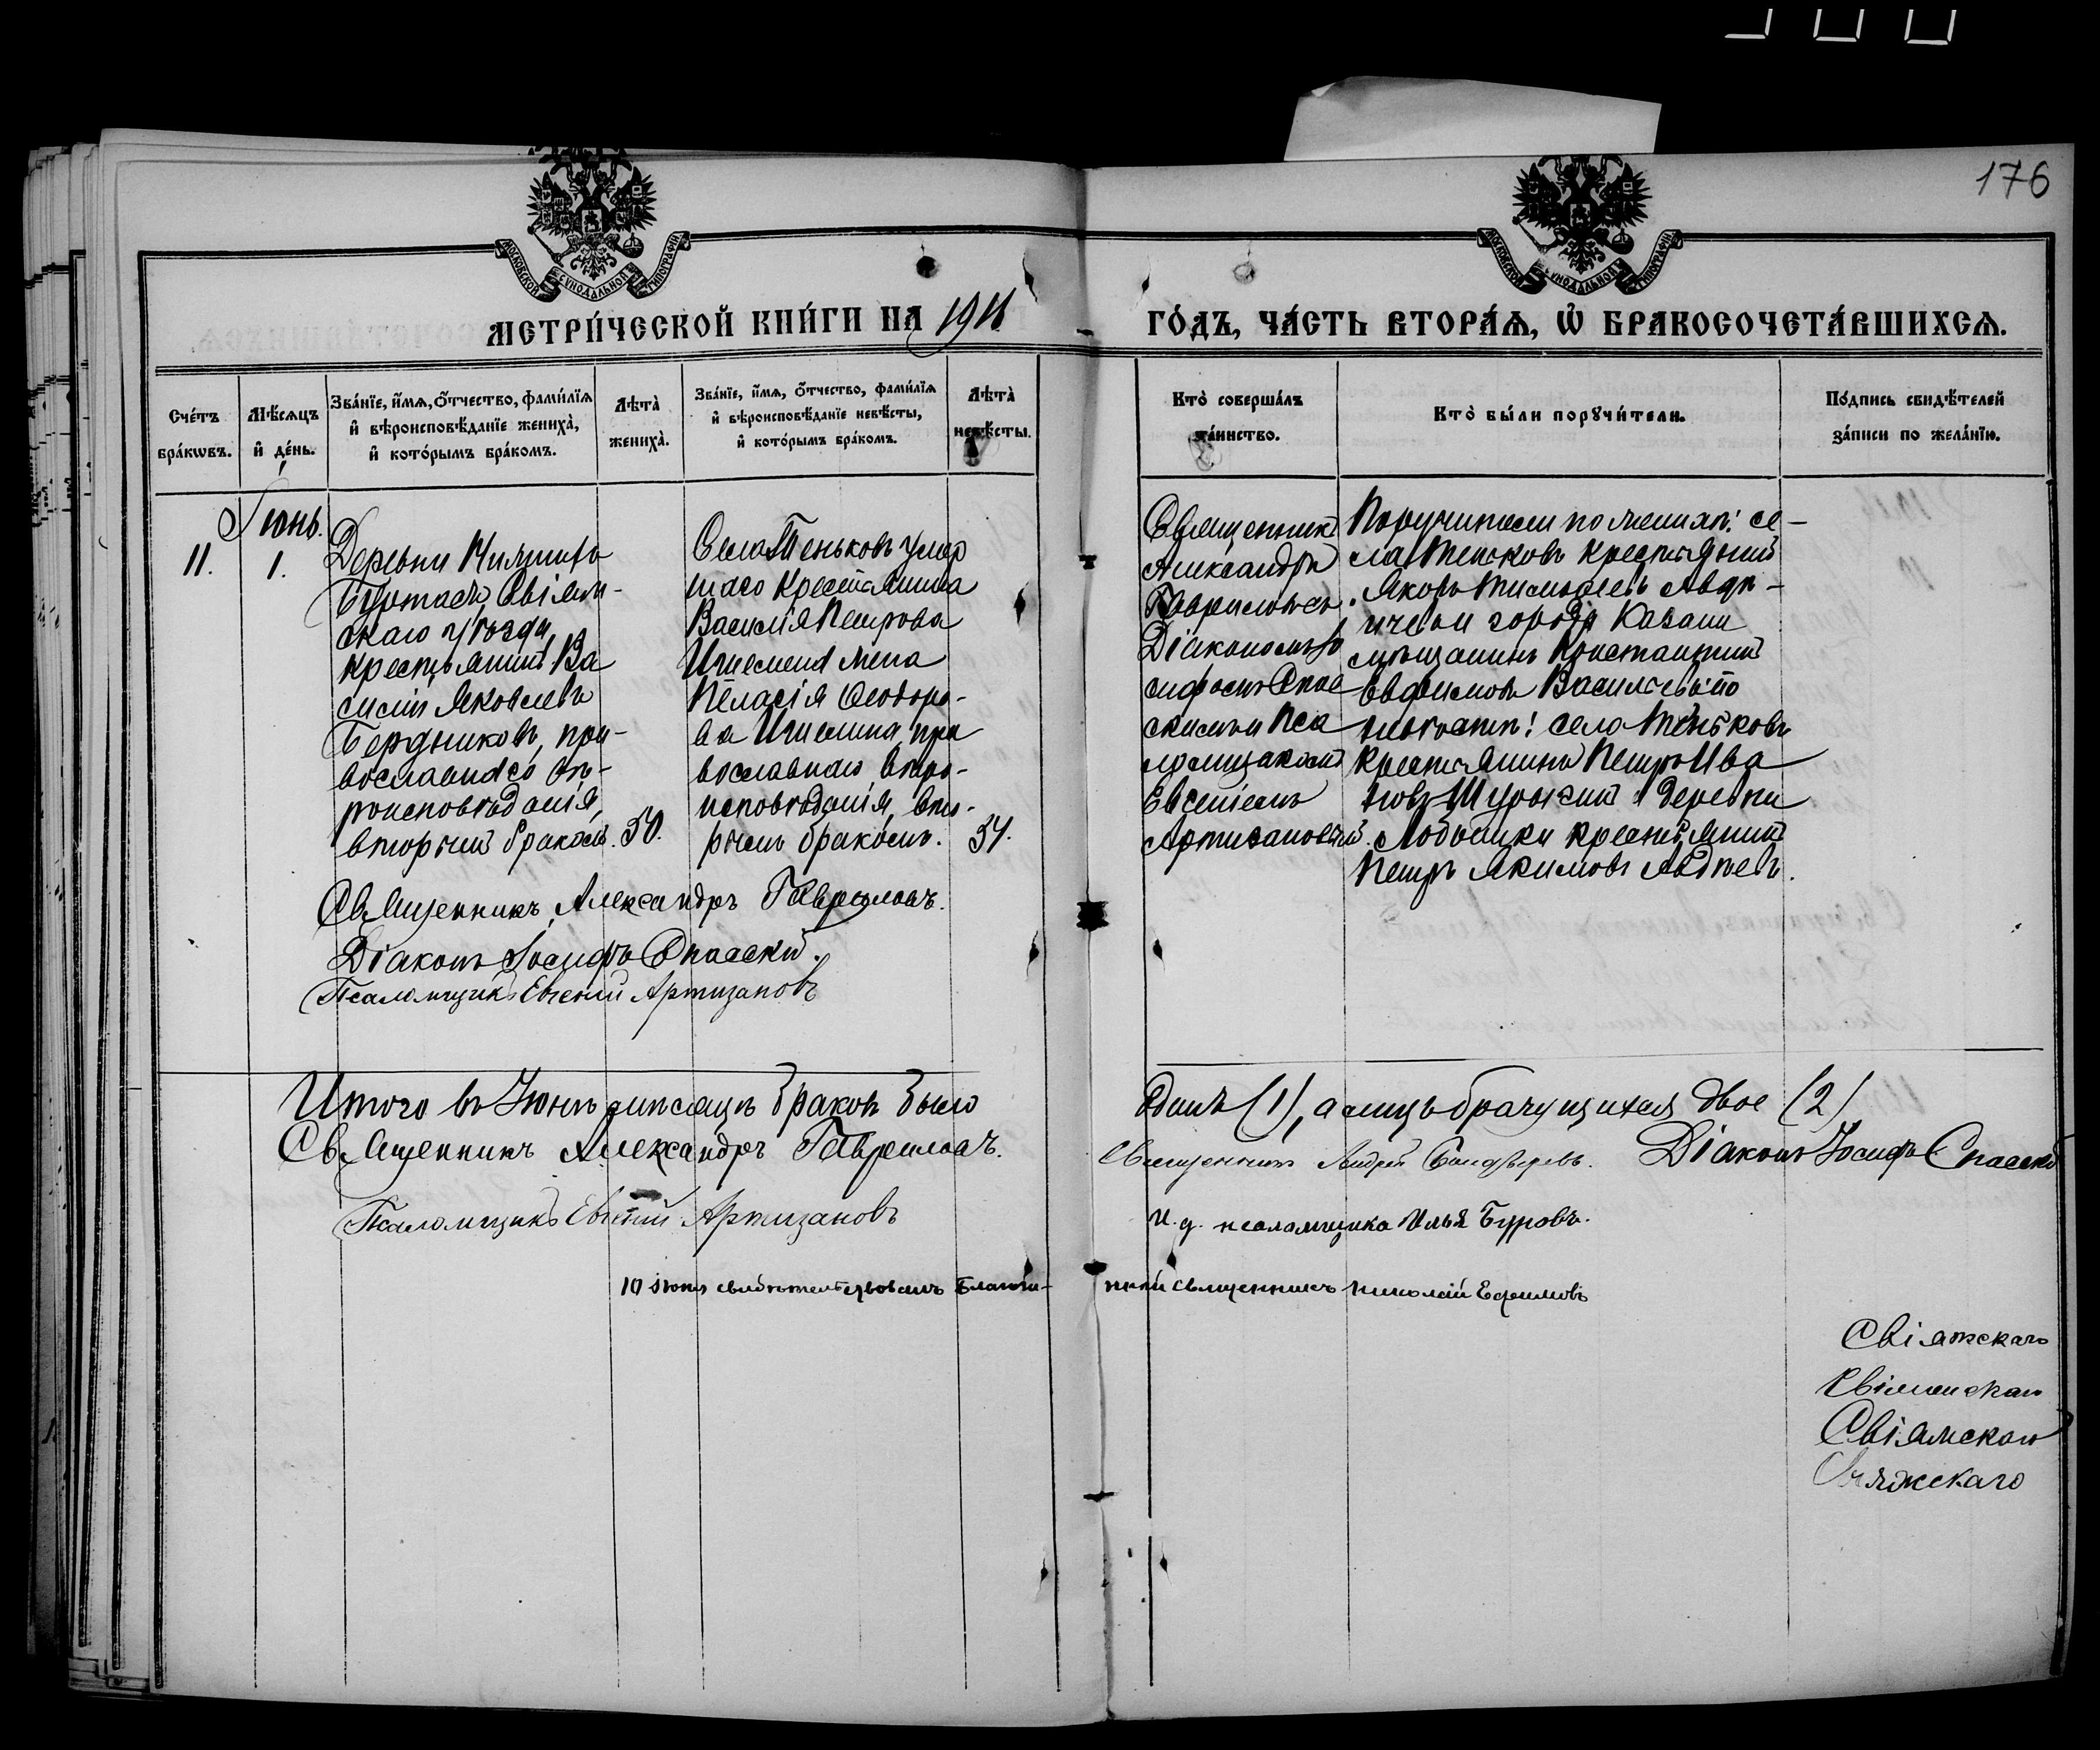 176
МОСКОВСКОЙ СѴНОДАЛЬНОЙ ТИПОГРАФІИ
МОСКОВСКОЙ СѴНОДАЛЬНОЙ ТИПОГРАФІИ
МЕТРИ́ЧЕСКОЙ КНИ́ГИ НА 1911
ГО́ДЪ, ЧА́СТЬ ВТОРА́Ѧ, Ѡ҆ БРАКОСОЧЕТА́ВШИХСѦ.
Сче́тъ бра́кѡвъ.
Мѣ́сѧцъ и҆ де́нь.
Зва́нїе, и҆́мѧ, ѻ҆́тчество, фами́лїѧ
и҆ вѣроисповѣ́данїе жениха̀,
и҆ кото́рымъ бра́комъ.
Лѣта̀ жениха̀.
Зва́нїе, и҆́мѧ, ѻ҆́тчество, фами́лїѧ
и҆ вѣроисповѣ́данїе невѣ́сты,
и҆ кото́рымъ бра́комъ.
Лѣта̀ невѣ́сты.
Кто̀ соверша́лъ та́инство.
Кто̀ бы́ли порꙋчи́тели.
По́дпись свидѣ́телей
за́писи по жела́нїю.
Іюнь.
11.
1.
Деревни
Буртасъ Свіяж-
скаго уѣзда,
крестьянинъ Ва
силій Яковлевъ
Бердниковъ, пра-
вославнаго вѣ-
роисповѣданія,
вторымъ бракомъ.
50.
Села Теньковъ умер
шаго крестьянина
Василія Петрова
Игнешина жена
Пелагія Ѳеодоро-
ва Игнешина, пра
вославнаго вѣро-
исповѣданія, вто-
рымъ бракомъ.
54.
Священникъ
Александръ
Гавриловъ съ
Діакономъ Іо
сифомъ Спас
скимъ и Пса
ломщикомъ
Евгеніемъ
Артизановымъ.
Поручители по женихѣ: се-
ла Теньковъ крестьянинъ
Яковъ Тимоѳеевъ
и города Казани
мѣщанинъ Константинъ
Евфимовъ Васильевъ; по
невѣстѣ: села Теньковъ
крестьянинъ Петръ Ива
новъ и деревни
Лобышки крестьянинъ
Петръ Якимовъ Авдѣевъ.
Священникъ Александръ Гавриловъ.
Діаконъ Іосифъ Спасскій.
Псаломщикъ Евгеній Артизановъ
Итого въ Іюнѣ мѣсяцѣ браковъ было
одинъ (1), а лицъ брачущихся двое (2)
Священникъ Александръ Гавриловъ.
Священникъ Андрей
Діаконъ Іосифъ Спасскій
Псаломщикъ Евгеній Артизановъ
И. д. псаломщика Илья Буровъ.
10 іюня свидѣтельствовалъ Благочи-
нный священникъ Николай Ефимовъ
Свіяжскаго
Свіяжскаго
Свіяжскаго
Свіяжскаго